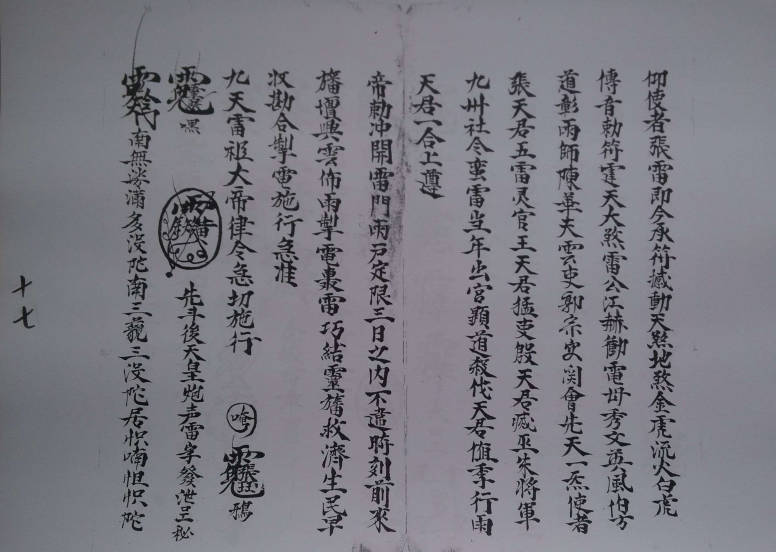 仰使者張雷即令承符撼動天煞地煞金虎流火白虎
傳音勅符霆天大煞雷公江赫勤電毋秀文英風伯方
道彰雨師陳華夫雲吏郭宗史関會先天一炁使者
張天君五雷灵官王天君猛吏殷天君滅巫朱將軍
九州社令蛮雷当年出官顕道殺伐天君值季行雨
天君一合上遵
帝勅冲開雷門雨戸定限三日之内不違時刻前來
旛增興雲佈雨掣電轟雷巧結靈旛救濟生民早
収勘合掣雷施行急准
九天雷祖大帝律令急切施行
嘿 先斗後天皇炮声雷字發泄呈秘 唵
南無 滿多没陀南三 三没陀居怾喃怛怾陀
十七